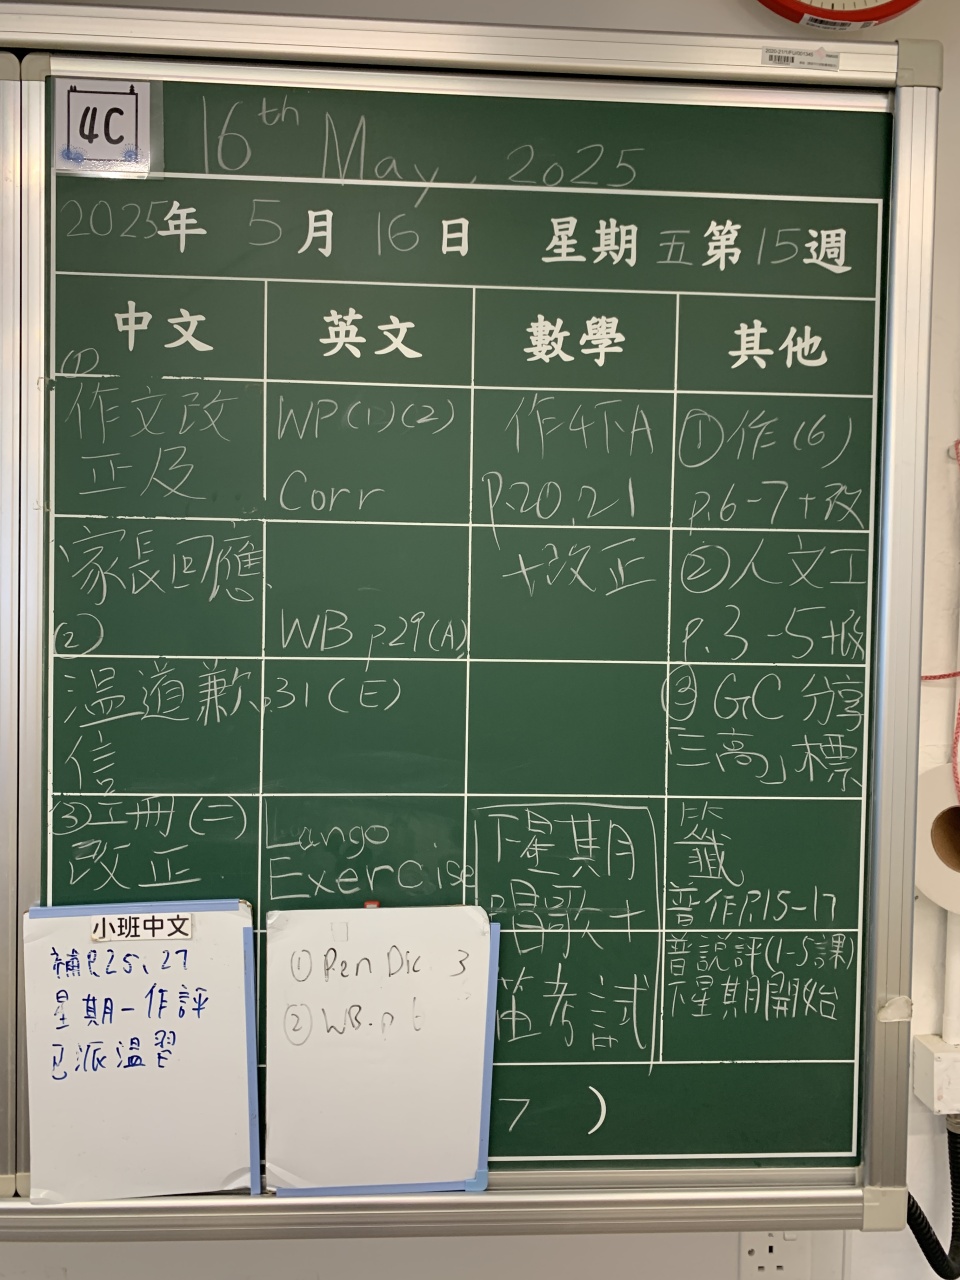 4C
16th May, 2025
2025年 5月 16日 星期五第15週
中文 英文 數學 其他
(1)
作文改
正及
家長回應
(2)
溫道歉
信
(3)工冊(二)
改正
WP(1)(2)
Corr
WB p.29(A)
p.31(E)
Lango
Exercise
作4下A
p.20,21
+改正
下星期
唱歌+
笛考試
①作(6)
p.6-7+改
②人文工
p.3-5+改
③GC分享
「三高」標
籤
普作P.15-17
普說評(1-5課)
下星期開始
7 )
小班中文
補P.25、27
星期一作評
已派溫習
① Pen Dic 3
② WB.p 6